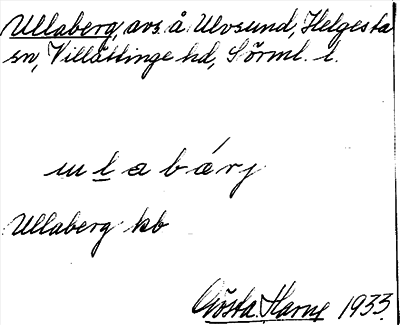 Ullaberg, avs. å Ulvsund, Helgesta
sn, Villåttinge hd, Sörml. l.
u l a b á r j
Ullaberg kb
Gösta Harne 1933.